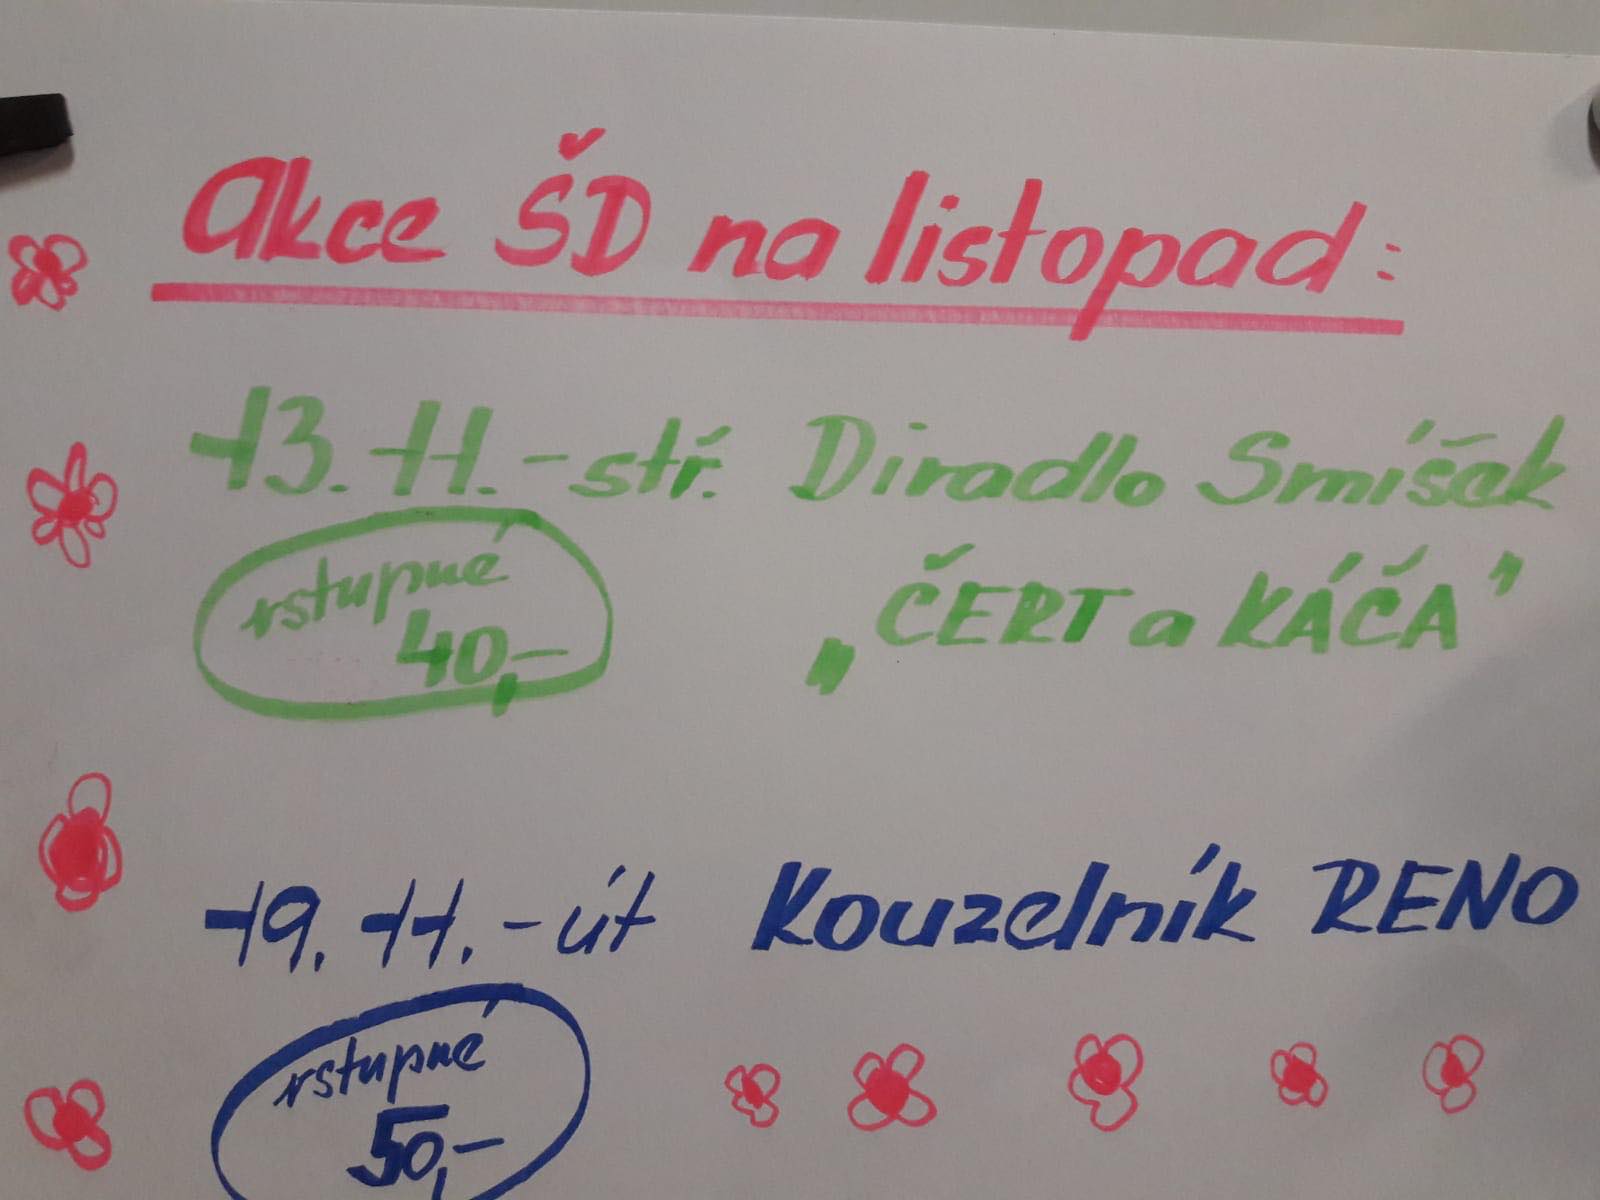 Akce ŠD na listopad:
13. 11. - stř. Divadlo Smíšek
vstupné
40,-
„ČERT a KÁČA"
19. 11. - út Kouzelník RENO
vstupné
50,-